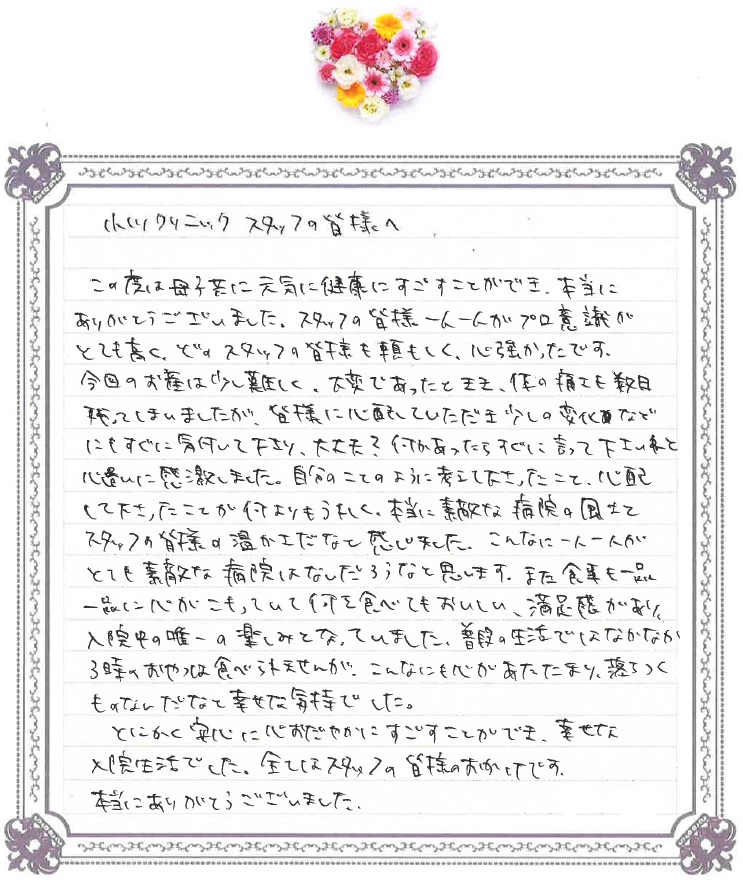 小川クリニック スタッフの皆様へ
この度は母子共に元気に健康にすごすことができ、本当に
ありがとうございました。スタッフの皆様一人一人がプロ意識が
とても高く、どのスタッフの皆様も頼もしく、心強かったです。
今回のお産は少し難しく、大変であったときき、体の痛さも数日
残ってしまいましたが、皆様に心配していただき少しの変化など
にもすぐに気付いて下さり、大丈夫?何かあったらすぐに言って下さいねと
心遣いに感激しました。自分のことのように考えて下さったこと、心配
して下さったことが何よりもうれしく、本当に素敵な病院の風土で
スタッフの皆様の温かさだなと感じました。こんなに一人一人が
とても素敵な病院はないだろうなと思います。また食事も一品
一品に心がこもっていて何を食べてもおいしい、満足感があり、
入院中の唯一の楽しみとなっていました。普段の生活ではなかなか
3時のおやつは食べられませんが、こんなにも心があたたまり、落ちつく
ものなんだなと幸せな気持でした。
とにかく安心に心おだやかにすごすことができ、幸せな
入院生活でした。全てはスタッフの皆様のおかげです。
本当にありがとうございました。